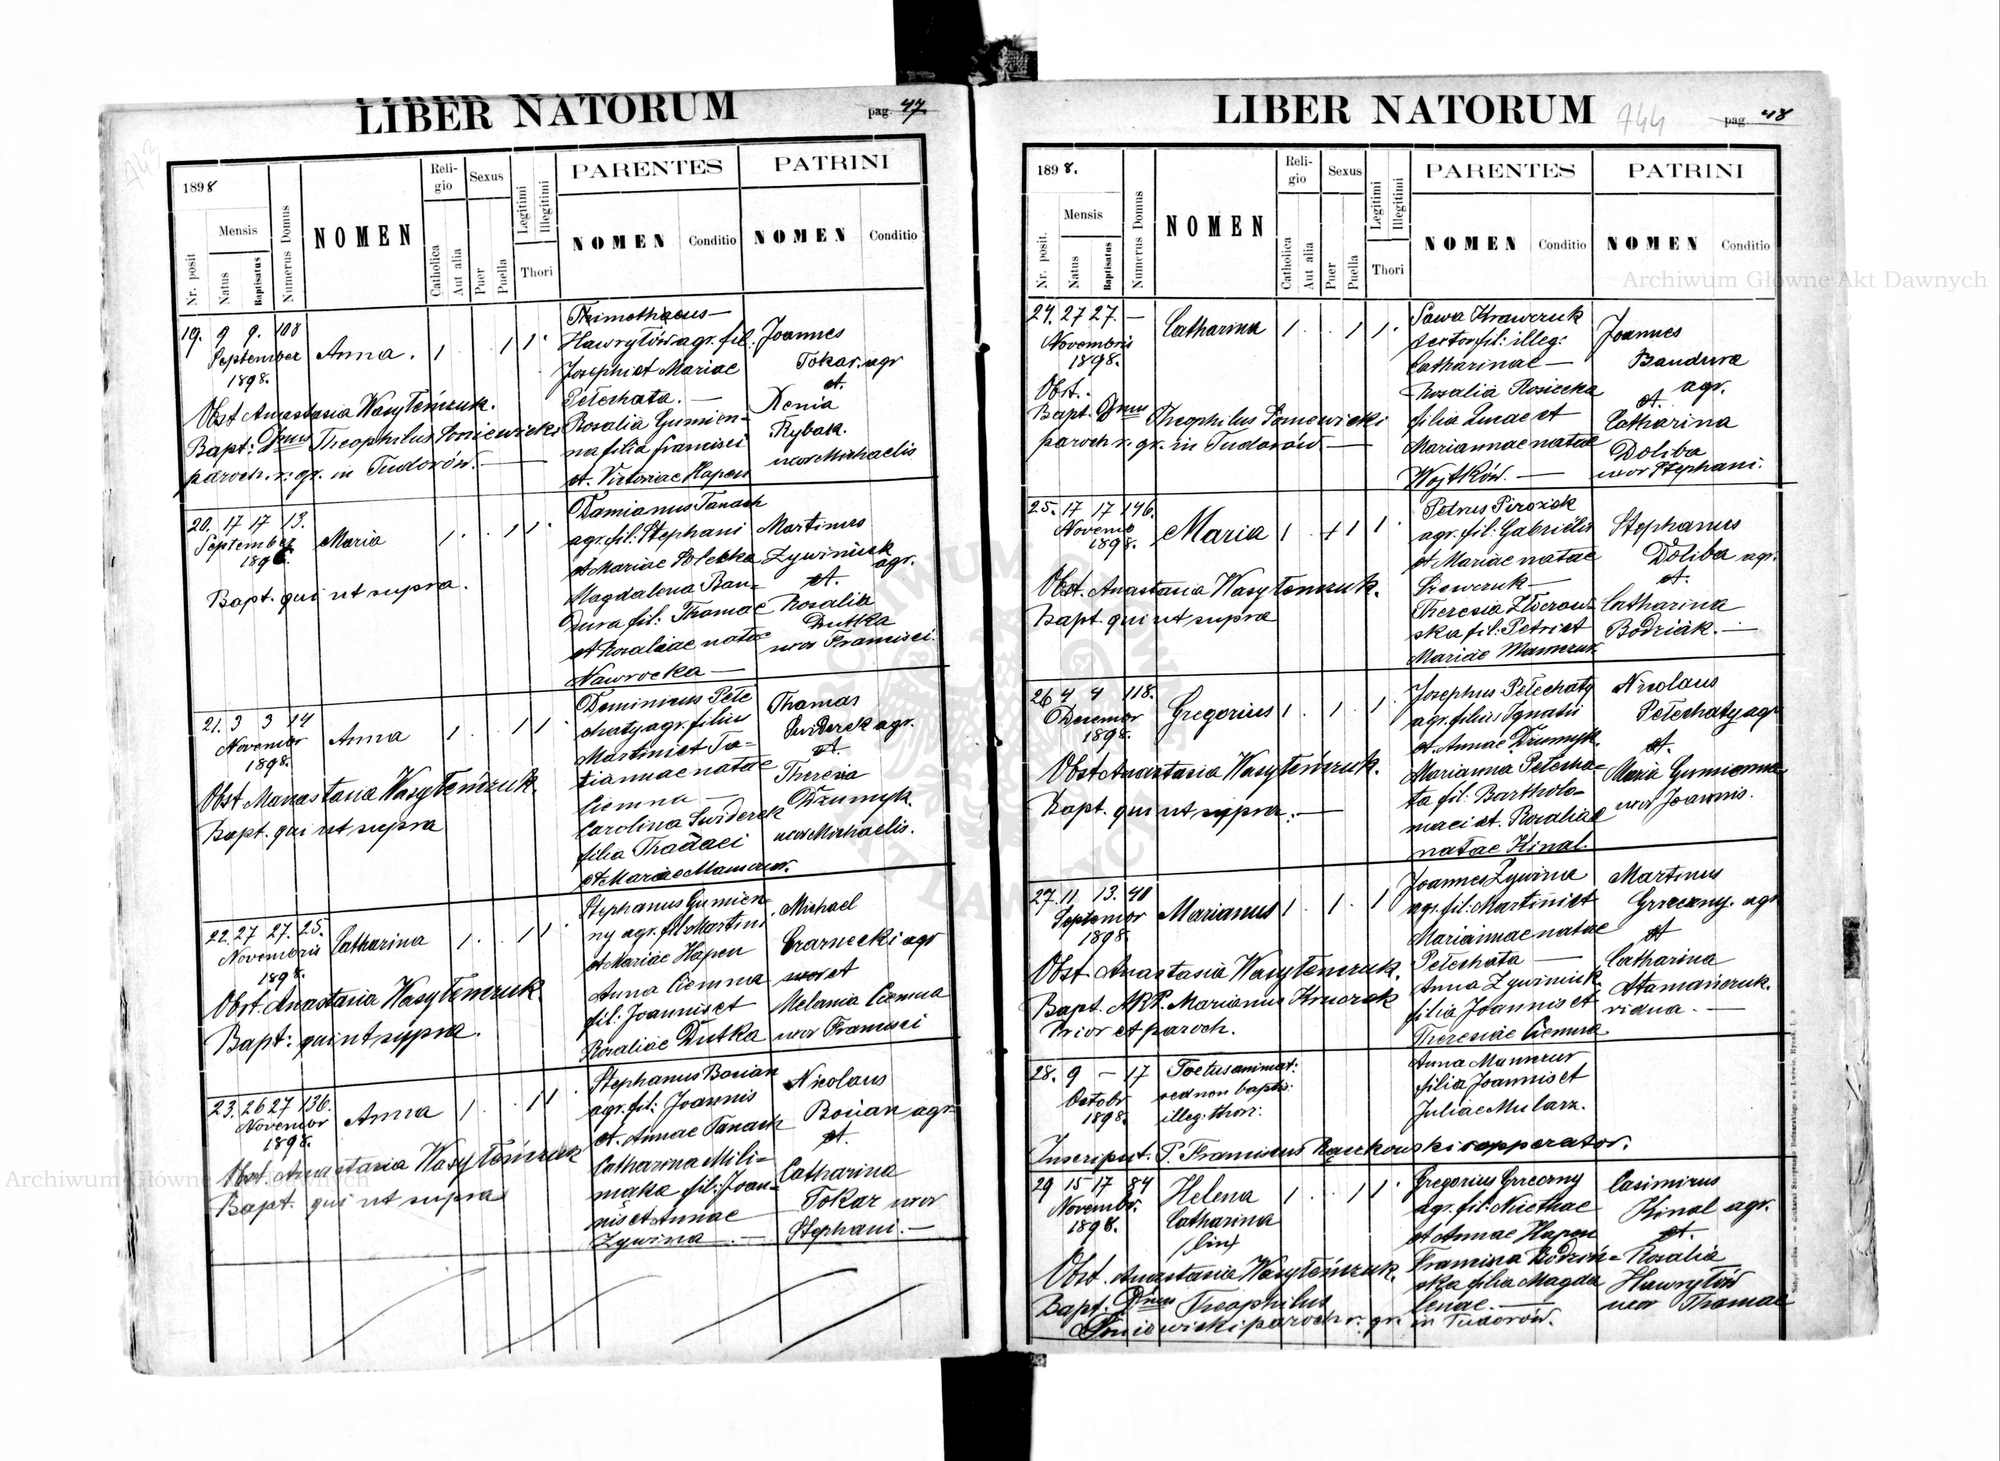 LIBER NATORUM
pag. 47
1898
Nr. posit
Mensis
Natus
Baptisatus
Numerus Domus
NOMEN
Religio
Catholica
Aut alia
Sexus
Puer
Puella
Legitimi
Illegitimi
Thori
PARENTES
NOMEN
Conditio
PATRINI
NOMEN
Conditio
19. 9 9. 108
September
1898.
Anna. 1 . . 1 1 .
Obst Anastasia Wasyłeńczuk.
Bapt: Dnus Theophilus Soniewicki
paroch. r. gr. in Tudorów. —
Timothaeus —
Hawryłów agr. fil.
Josephi et Mariae
Pełechata. —
Rosalia Gumien-
na filia Francisci
et. Victoriae Hapen
Joannes
Tokar. agr
et.
Xenia
Rybak.
uxor Michaelis
20. 17 17 13.
September
1898.
Maria 1 . . 1 1 .
Bapt. qui ut supra.
Damianus Panach
agr. fil: Stephani
et Mariae
Magdalena Ban-
dura fil: Thomae
et Rosaliae natae
Nawrocka —
Martinus
Zywiniuk
agr.
et.
Rosalia
Dutka
uxor Francisci.
21. 3 3 14
Novembr
1898.
Anna 1 . . 1 1 .
Obst Manastasia Wasyłeńczuk.
Bapt. qui ut supra
Dominicus Pełe
chaty agr. filius
Martini et Ta-
tiannae natae
Ciemna —
Carolina Swiderek
filia Thadaei
et Mariae
Thomas
Swiderek agr.
et.
Theresia
Dzumyk.
uxor Michaelis.
22. 27 27. 25.
Novembris
1898.
Catharina 1 . . 1 1
Obst. Anastasia Wasyłeńczuk.
Bapt: qui ut supra.
Stephanus Gumien-
ny agr. fil Martini
et Mariae Hapen
Anna Ciemna
fil: Joannis et
Rosaliae Dutka
Michael
Czarnecki agr
et
Melania Ciemna
uxor Francisci
23. 26 27 136.
Novembr
1898.
Anna 1 . . 1 1
Obst. Anastasia Wasyłeńczuk
Bapt. qui ut supra
Stephanus Bosian
agr. fil: Joannis
et. Annae Panach
Catharina Mili-
maka fil: Joan-
nis et Annae
Zywina. —
Nicolaus
Bosian agr.
et.
Catharina
Tokar uxor
Stephani. —
LIBER NATORUM
744
pag. 48
1898.
Nr. posit.
Mensis
Natus
Baptisatus
Numerus Domus
NOMEN
Religio
Catholica
Aut alia
Sexus
Puer
Puella
Legitimi
Illegitimi
Thori
PARENTES
NOMEN
Conditio
PATRINI
NOMEN
Conditio
24. 27 27. —
Novembris
1898.
Catharina 1 . . 1 1 .
Obst.
Bapt. Dnus Theophilus Soniewicki
paroch r. gr. in Tudorów —
Sawa Krawczuk
fil: illeg:
Catharinae —
Rosalia Rosiecka
filia Lucae et
Mariannae natae
Wojtków. —
Joannes
Bandura
agr.
et.
Catharina
Doliba
uxor Stephani.
25. 17 17 146.
Novemb
1898.
Maria 1 . + 1 1 .
Obst. Anastasia Wasyłeńczuk.
Bapt. qui ut supra
Petrus Pirozick
agr. fil: Gabrielis
et Mariae natae
Szewczuk —
Theresia
ska fil: Petri et
Mariae
Stephanus
Doliba agr.
et.
Catharina
Bodziák. —
26 4 4 118.
Decembr
1898.
Gregorius 1 . 1 . 1 .
Obst Anastasia Wasyłeńczuk.
Bapt. qui ut supra. —
Josephus Pełechaty
agr. filius Ignatii
et Annae Dzumyk.
Marianna Pełecha-
ta fil: Bartholo-
maei et. Rosaliae
natae Kinal.
Nicolaus
Pełechaty agr
et.
Maria Gumienna
uxor Joannis.
27. 11 13. 40
Septembr
1898.
Marianus 1 . 1 . 1
Obst. Anastasia Wasyłeńczuk.
Bapt. ARP. Marianus Kruczek
Prior et paroch.
Joannes Zywina
agr. fil: Martini et
Mariannae natae
Pełechata —
Anna Zywiniuk
filia Joannis et
Theresiae Ciemna
Martinus
Grzeczny. agr
et
Catharina
Atamańczuk.
vidua. —
28. 9 — 17
Octobr
1898.
Foetus animat:
sed non baptis:
illeg: thori:
Anna Mamczur
filia Joannis et
Juliae Mularz.
Inscripsit. P. Franciscus Rączkowski cooperator.
29 15 17 84
Novembr.
1898.
Helena
Catharina
(bin)
1 . . 1 1 .
Obst. Anastasia Wasyłeńczuk.
Bapt. Dnus Theophilus
Soniewicki paroch r. gr. in Tudorów.
Gregorius Grzeczny
agr. fil: Niethae
et Annae Hapen
Francisca Rodzin-
ska filia Magda
lenae. —
Casimirus
Kinal agr.
et.
Rosalia
Hawryłów
uxor Thomae
Archiwum Główne Akt Dawnych
Archiwum Główne Akt Dawnych
ARCHIWUM GŁÓWNE AKT DAWNYCH